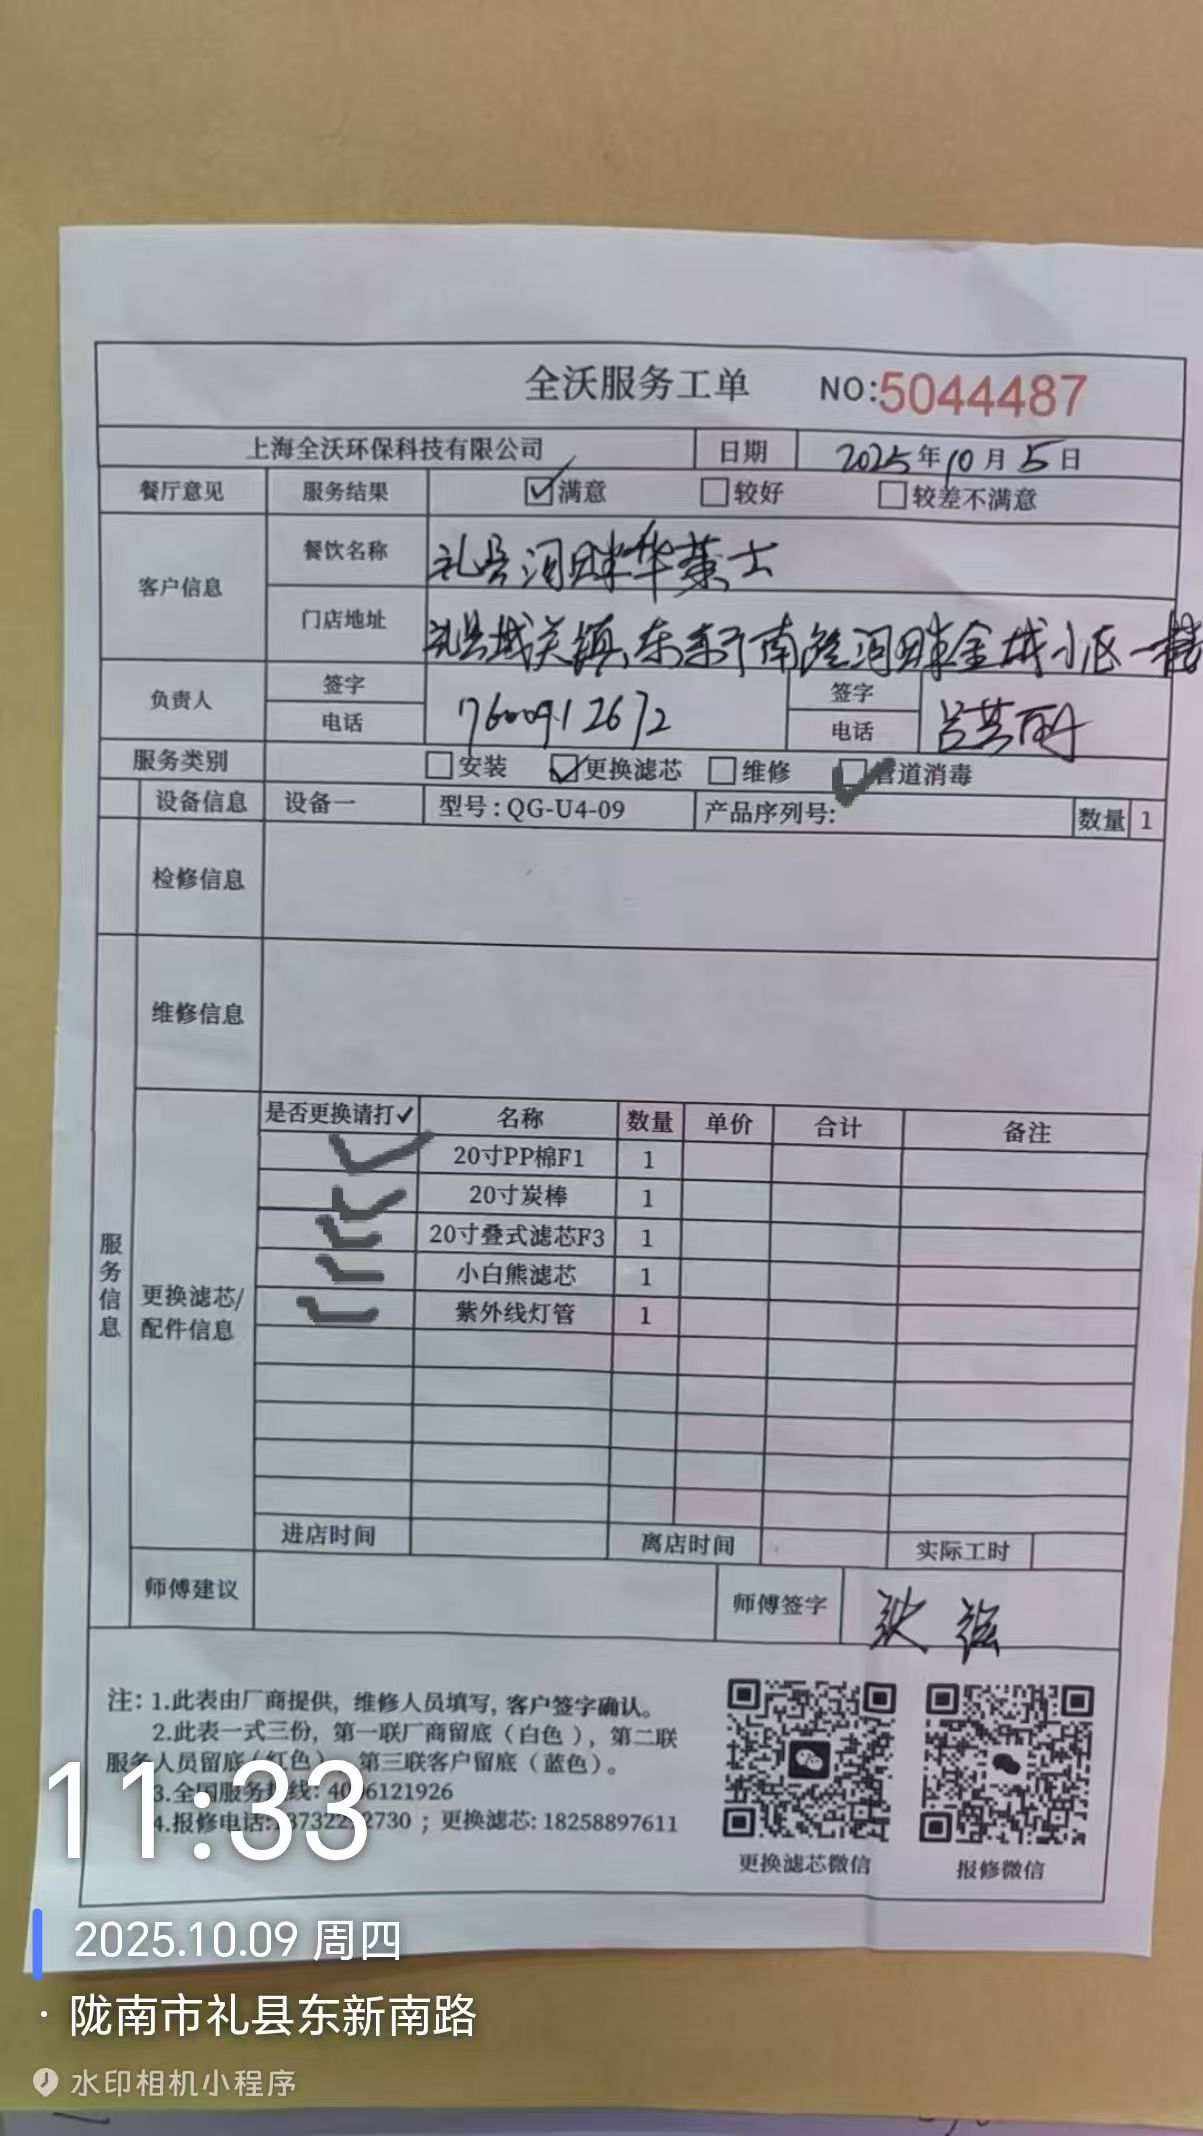 全沃服务工单 NO:5044487
上海全沃环保科技有限公司 日期 2025年10月5日
餐厅意见 服务结果 满意 较好 较差不满意
客户信息 餐饮名称 礼县河畔华莱士
门店地址 礼县城关镇东新南路河畔金城小区一楼
负责人 签字 签字
电话 17600912672 电话
服务类别 安装 更换滤芯 维修 管道消毒
设备信息 设备一 型号:QG-U4-09 产品序列号: 数量 1
检修信息
维修信息
服务信息
更换滤芯/
配件信息
是否更换请打✓ 名称 数量 单价 合计 备注
20寸PP棉F1 1
20寸炭棒 1
20寸叠式滤芯F3 1
小白熊滤芯 1
紫外线灯管 1
进店时间 离店时间 实际工时
师傅建议 师傅签字
注: 1.此表由厂商提供, 维修人员填写, 客户签字确认。
2.此表一式三份, 第一联厂商留底 (白色), 第二联
服务人员留底 (红色) 第三联客户留底 (蓝色)。
3.全国服务热线: 4006121926
4.报修电话: ; 更换滤芯: 18258897611
更换滤芯微信 报修微信
11:33
2025.10.09 周四
· 陇南市礼县东新南路
水印相机小程序